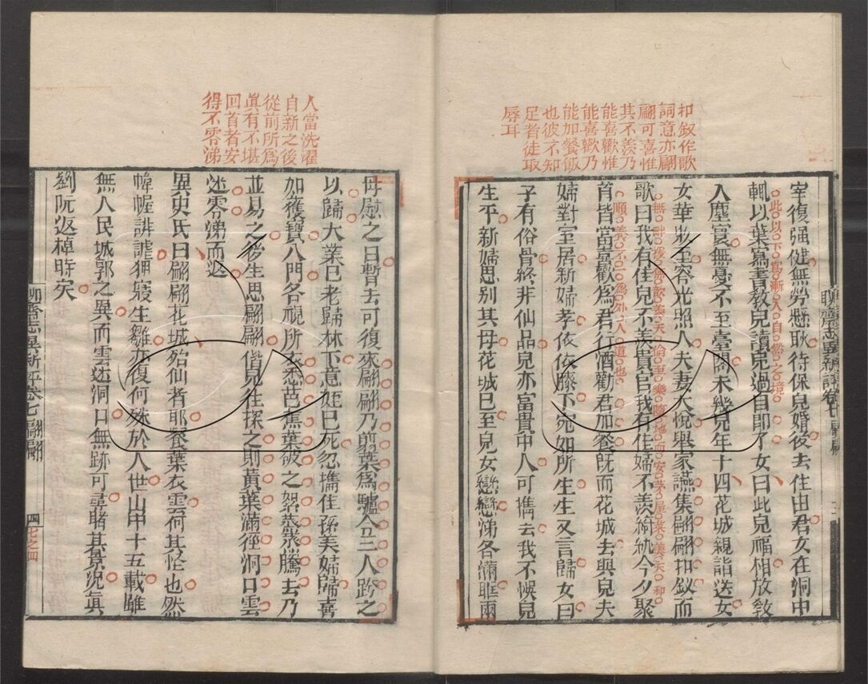 扣釵作歌
詞意亦翩
翩可喜惟
其不羨乃
能喜歡惟
能喜歡乃
能加餐飯
也彼不知
足者徒取
辱耳
宰復强健無勞懸耿待保兒婚後去住由君女在洞中
輒以葉寫書教兒讀兒過目即了女曰此兒福相放敎
入塵寰無憂不至臺閣未幾兒年十四花城親詣送女
女華妝至容光照人夫妻大悅舉家讌集翩翩扣釵而
歌曰我有佳兒不羨貴官我有佳婦不羨綺紈今夕聚
首皆當喜歡爲君行酒勸君加餐旣而花城去與兒夫
婦對室居新婦孝依依膝下宛如所生生又言歸女曰
子有俗骨終非仙品兒亦富貴中人可攜去我不悞兒
生平新婦思别其母花城已至兒女戀戀涕各滿眶兩
人當洗濯
自新之後
從前所爲
眞有不堪
回首者安
得不零涕
母慰之曰暫去可復來翩翩乃剪葉爲驢令三人跨之
以歸大業已老歸林下意姪已死忽攜佳孫美婦歸喜
如獲寶入門各視所衣悉芭蕉葉破之絮蒸蒸騰去乃
並易之後生思翩翩偕兒往探之則黄葉滿徑洞口雲
迷零涕而返
異史氏曰翩翩花城殆仙者耶餐葉衣雲何其怪也然
幃幄誹謔狎寢生雛亦復何殊於人世山中十五載雖
無人民城郭之異而雲迷洞口無跡可尋睹其景況真
劉阮返棹時矣
聊齋志異新評卷七 翩翩
四